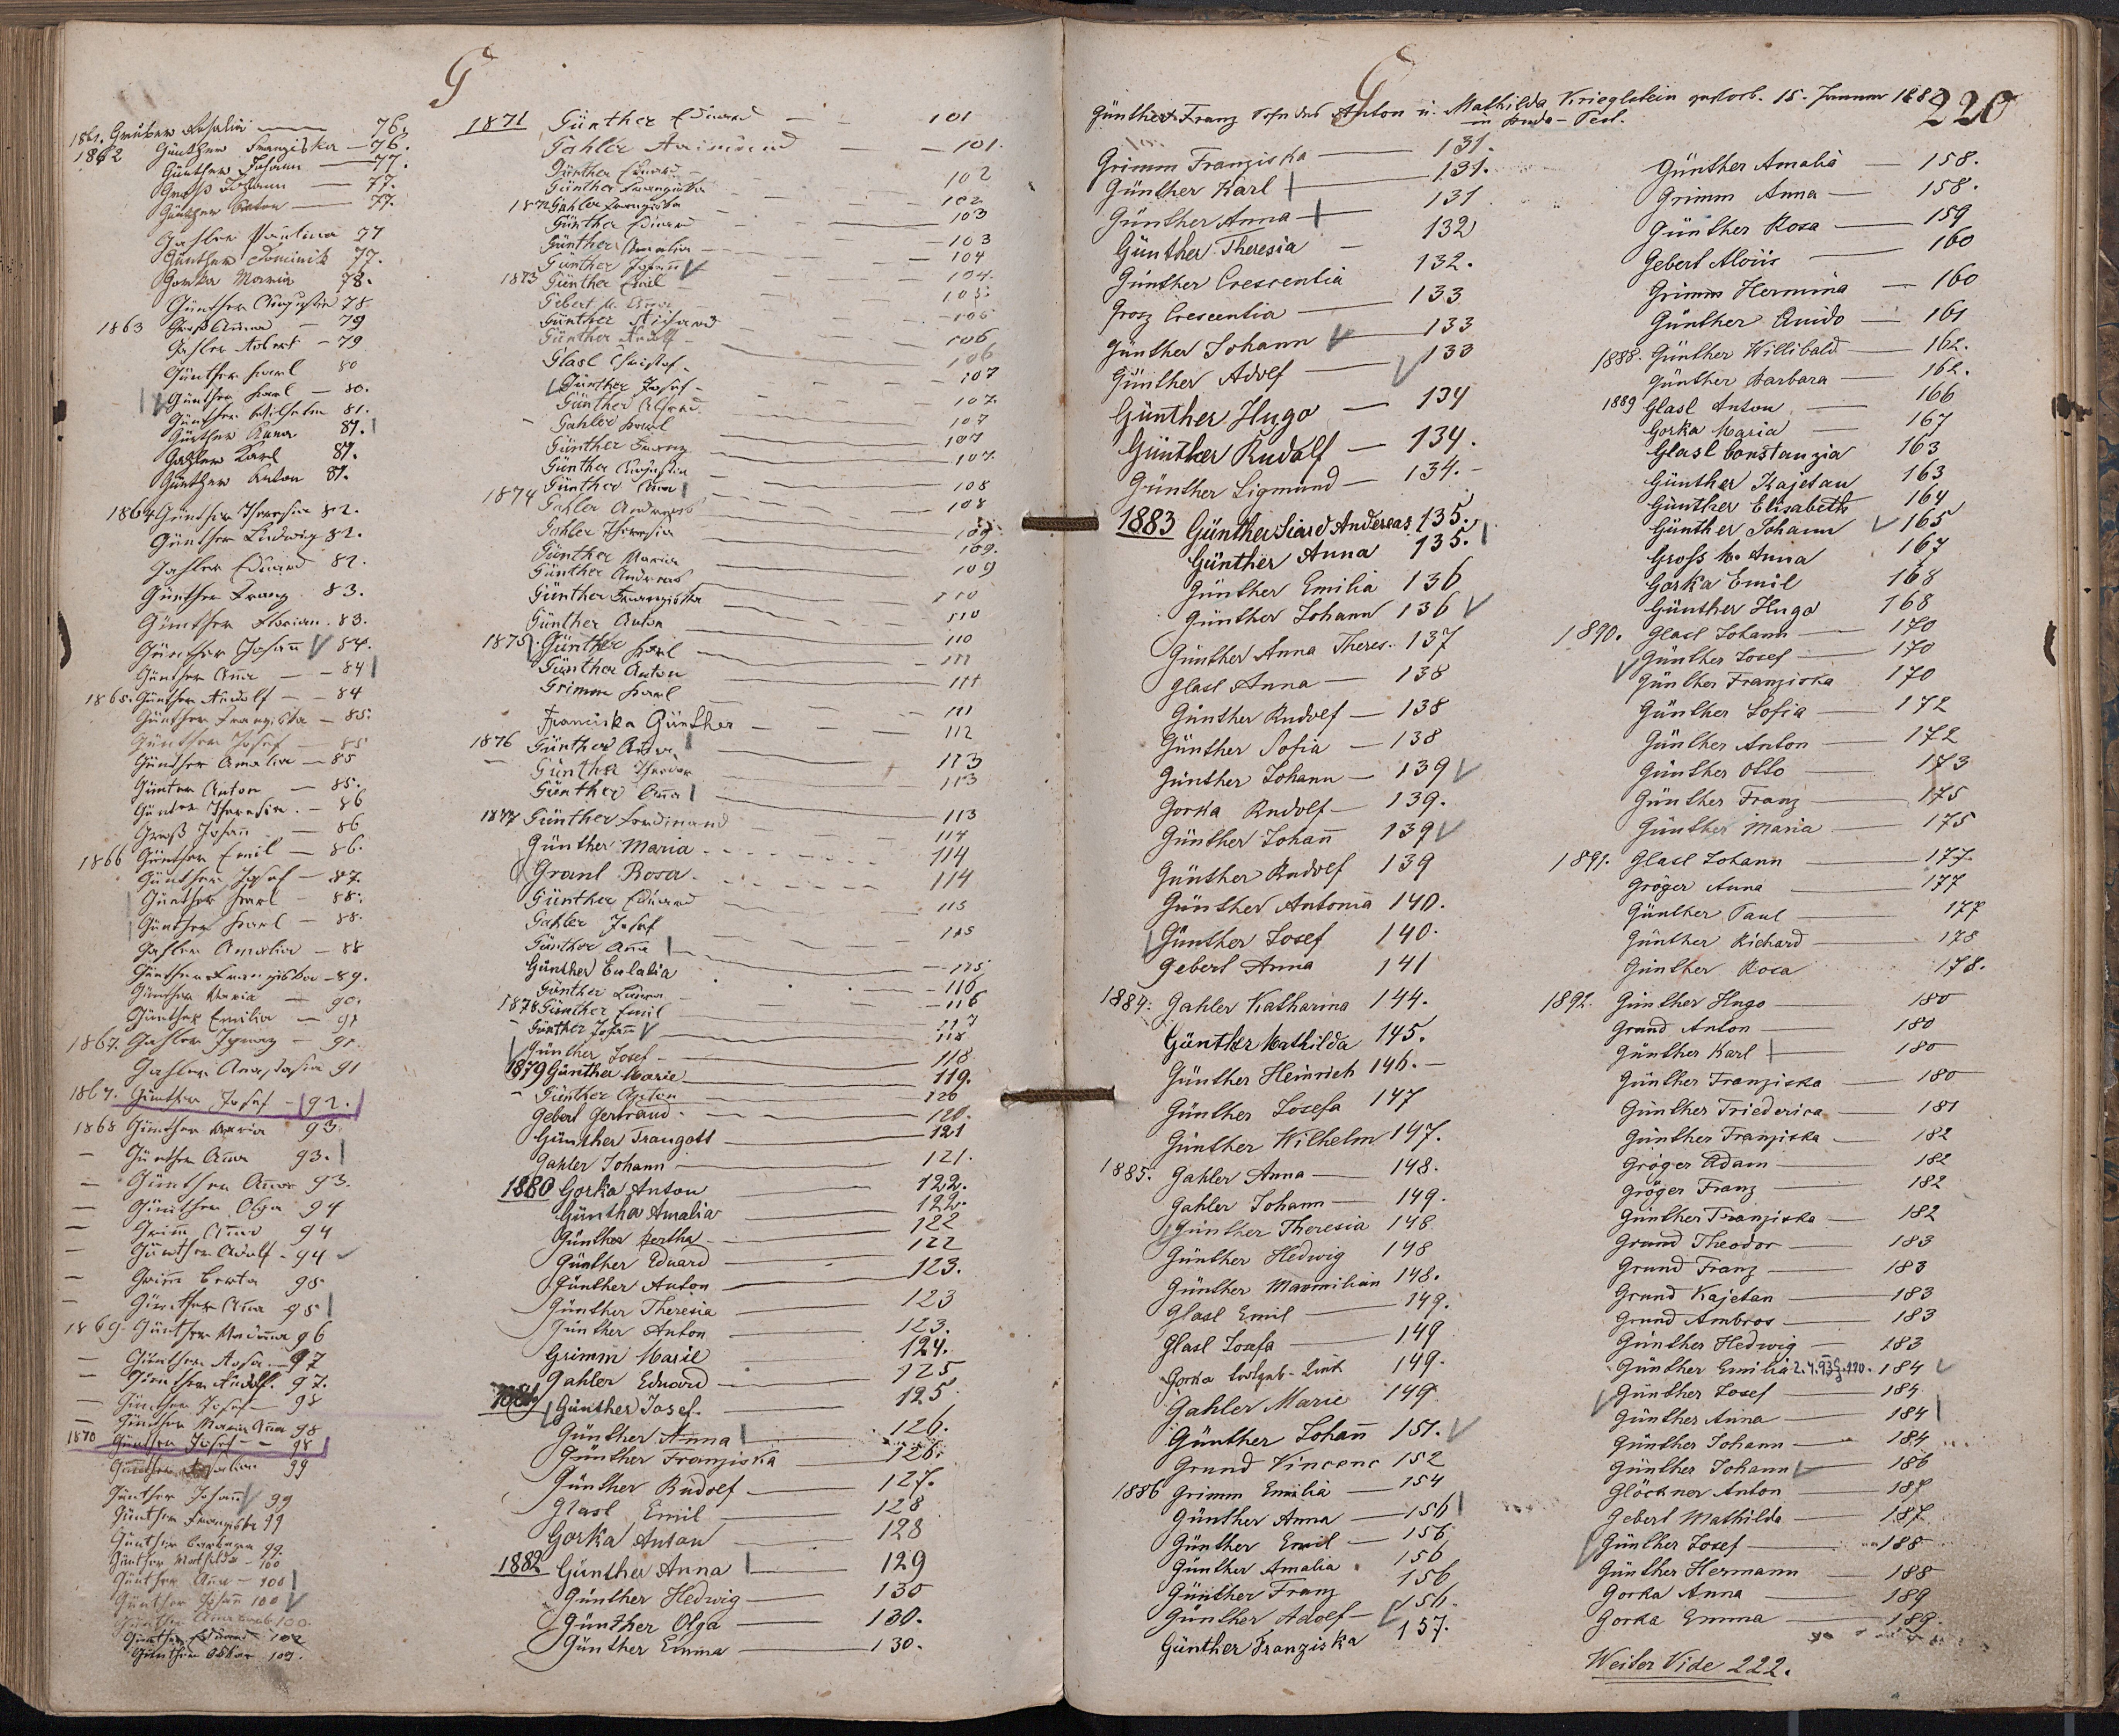 G
1861. Gruber Rosalia — 76.
1862 Günther Franziska — 76.
Günther Johann — 77.
Groß Johann — 77.
Günther Anton — 77.
Gahler Paulina 77
Günther Dominik 77.
Gorka Maria 78.
Günther Augustin 78
1863 Groß Anna — 79
Gahler Robert — 79
Günther Karl 80
Günther Karl — 80.
Günther Wilhelm 81.
Günther Anna 81.
Gahler Karl 81.
Günther Anton 81.
1864 Günther Theresia 82.
Günther Ludwig 82.
Gahler Eduard 82.
Günther Franz 83.
Günther Florian. 83.
Günther Johann 84.
Günther Anna — 84
1865. Günther Rudolf — 84
Günther Franziska — 85.
Günther Josef — 85
Günther Amalia — 85
Günter Anton — 85.
Günter Theresia. — 86
Groß Johann — 86
1866 Günther Emil — 86.
Günther Josef — 87.
Günther Karl — 88.
Günther Karl — 88.
Gahler Amalia — 88
Günther Franziska — 89.
Günther Maria — 90.
Günther Emilia — 91
1867. Gahler Ignaz — 91.
Gahler Anastasia 91
1867. Günther Josef — 92.
1868 Günther Maria 93
— Günther Anna 93.
— Günther Anna 93.
— Günther Olga 94
— Grimm Anna 94
— Günther Adolf — 94
— Grimm Berta 95
— Günther Anna 95
1869 Günther 96
— Günther Rosa — 97
— Günther Rudolf. 97.
— Günther Josef — 98
— Günther Maria Anna 98
1870 Günther Josef — 98
Günther 99
Günther Johann 99
Günther Franziska 99
Günther Barbara 99.
Günther Mathilda — 100
Günther Anna — 100
Günther Johann 100
Günther 100
Günther Eduard 102
Günther Oskar 102.
1871 Günther Eduard — 101
Gahler Raimund — 101.
Günther Eduard — 102
Günther Franziska — 102
1872 Gahler Franziska — 103
Günther Eduard — 103
Günther Amalia — 104
Günther Johann — 104.
1873 Günther Emil — 105.
Gebert M. Anna — 105
Günther Richard — 106
Günther Rudolf — 106
Glasl Christof. — 107
Günther Josef — 107.
Günther Alfred. — 107
Gahler Karl — 107
Günther Franz — 107.
Günther Augustin — 108
Günther Anna — 108
1874 Gahler Andreas — 109
Gahler Theresia — 109.
Günther Maria — 109
Günther Andreas — 110
Günther Franziska — 110
Günther Anton — 110
1875 Günther Karl — 111
Günther Anton — 111
Grimm Karl — 111
Franciska Günther — 112
1876 Günther Anna — 113
Günther Theodor — 113
Günther Anna — 113
1877 Günther Ferdinand — 114
Günther Maria — 114
Granl Rosa — 114
Günther Eduard — 115
Gahler Josef — 115
Günther Anna — 115
Günther Eulalia — 116
Günther — 116
1878 Günther Emil — 117
Günther Johann — 118
Günther Josef — 118
1879 Günther Marie — 119.
Günther Anton — 120
Gebert Gertraud — 120.
Günther Traugott — 121
Gahler Johann — 121.
1880 Gorka Anton — 122.
Günther Amalia — 122.
Günther Bertha — 122
Günther Eduard — 122
Günther Anton — 123.
Günther Theresia — 123
Günther Anton — 123.
Grimm Marie — 124.
Gahler Eduard — 125
1881 Günther Josef. — 125
Günther Anna — 126.
Günther Franziska — 126.
Günther Rudolf — 127.
Glasl Emil — 128
Gorka Anton — 128
1882 Günther Anna — 129
Günther Hedwig — 130
Günther Olga — 130.
Günther Emma — 130.
G
220
Günther Franz Sohn des Anton u. Mathilda Krieglstein gestorb. 15. Januar 188
in Buda-Pest.
Grimm Franziska — 131.
Günther Karl — 131.
Günther Anna — 131
Günther Theresia — 132
Günther Crescentia 132.
Grosz Crescentia — 133
Günther Johann — 133
Günther Adolf — 133
Günther Hugo — 134
Günther Rudolf — 134.
Günther Sigmund — 134.
1883 Günther Siard Andereas 135.
Günther Anna 135.
Günther Emilia 136
Günther Johann 136
Günther Anna Theres. 137
Glasl Anna — 138
Günther Rudolf — 138
Günther Sofia — 138
Günther Johann — 139
Gorka Rudolf — 139.
Günther Johann 139
Günther Rudolf 139
Günther Antonia 140.
Günther Josef 140.
Gebert Anna 141
1884: Gahler Katharina 144.
Günther Mathilda 145.
Günther Heinrich 146. —
Günther Josefa 147
Günther Wilhelm 147.
1885: Gahler Anna — 148.
Gahler Johann — 149.
Günther Theresia 148
Günther Hedwig 148
Günther Maxmilian 148.
Glasl Emil — 149.
Glasl Josefa — 149
Gorka 149.
Gahler Marie 149
Günther Johann 151.
Grund Vincenc 152
1886 Grimm Emilia — 154
Günther Anna — 156
Günther Emil — 156
Günther Amalia 156
Günther Franz 156
Günther Adolf — 156.
Günther Franziska 157.
Günther Amalia — 158.
Grimm Anna — 158.
Günther Rosa — 159
Gebert Aloiis — 160
Grimm Hermina — 160
Günther Quido — 161
1888. Günther Willibald — 162.
Günther Barbara — 162.
1889 Glasl Anton — 166
Gorka Maria — 167
Glasl Constanzia 163
Günther Kajetan 163
Günther Elisabeth 164
Günther Johann 165
Gross M. Anna 167
Gorka Emil 168
Günther Hugo 168
1890. Glasl Johann — 170
Günther Josef — 170
Günther Franziska 170
Günther Sofia — 172
Günther Anton — 172
Günther Otto — 173
Günther Franz — 175
Günther Maria — 175
1891. Glasl Johann — 177
Gröger Anna — 177
Günther Paul — 177
Günther Richard — 178
Günther Rosa 178.
1892. Günther Hugo — 180
Grund Anton — 180
Günther Karl — 180
Günther Franziska — 180
Günther Friederica — 181
Günther Franziska — 182
Gröger Adam — 182
Gröger Franz — 182
Günther Franziska — 182
Grund Theodor — 183
Grund Franz — 183
Grund Kajetan — 183
Grund Ambros — 183
Günther Hedwig — 183
Günther Emilia 184
Günther Josef — 184
Günther Anna — 184
Günther Johann — 184
Günther Johann 186
Glöckner Anton — 187
Gebert Mathilda — 187
Günther Josef — 188
Günther Hermann — 188
Gorka Anna — 189
Gorka Emma — 189.
Weiter Vide 222.